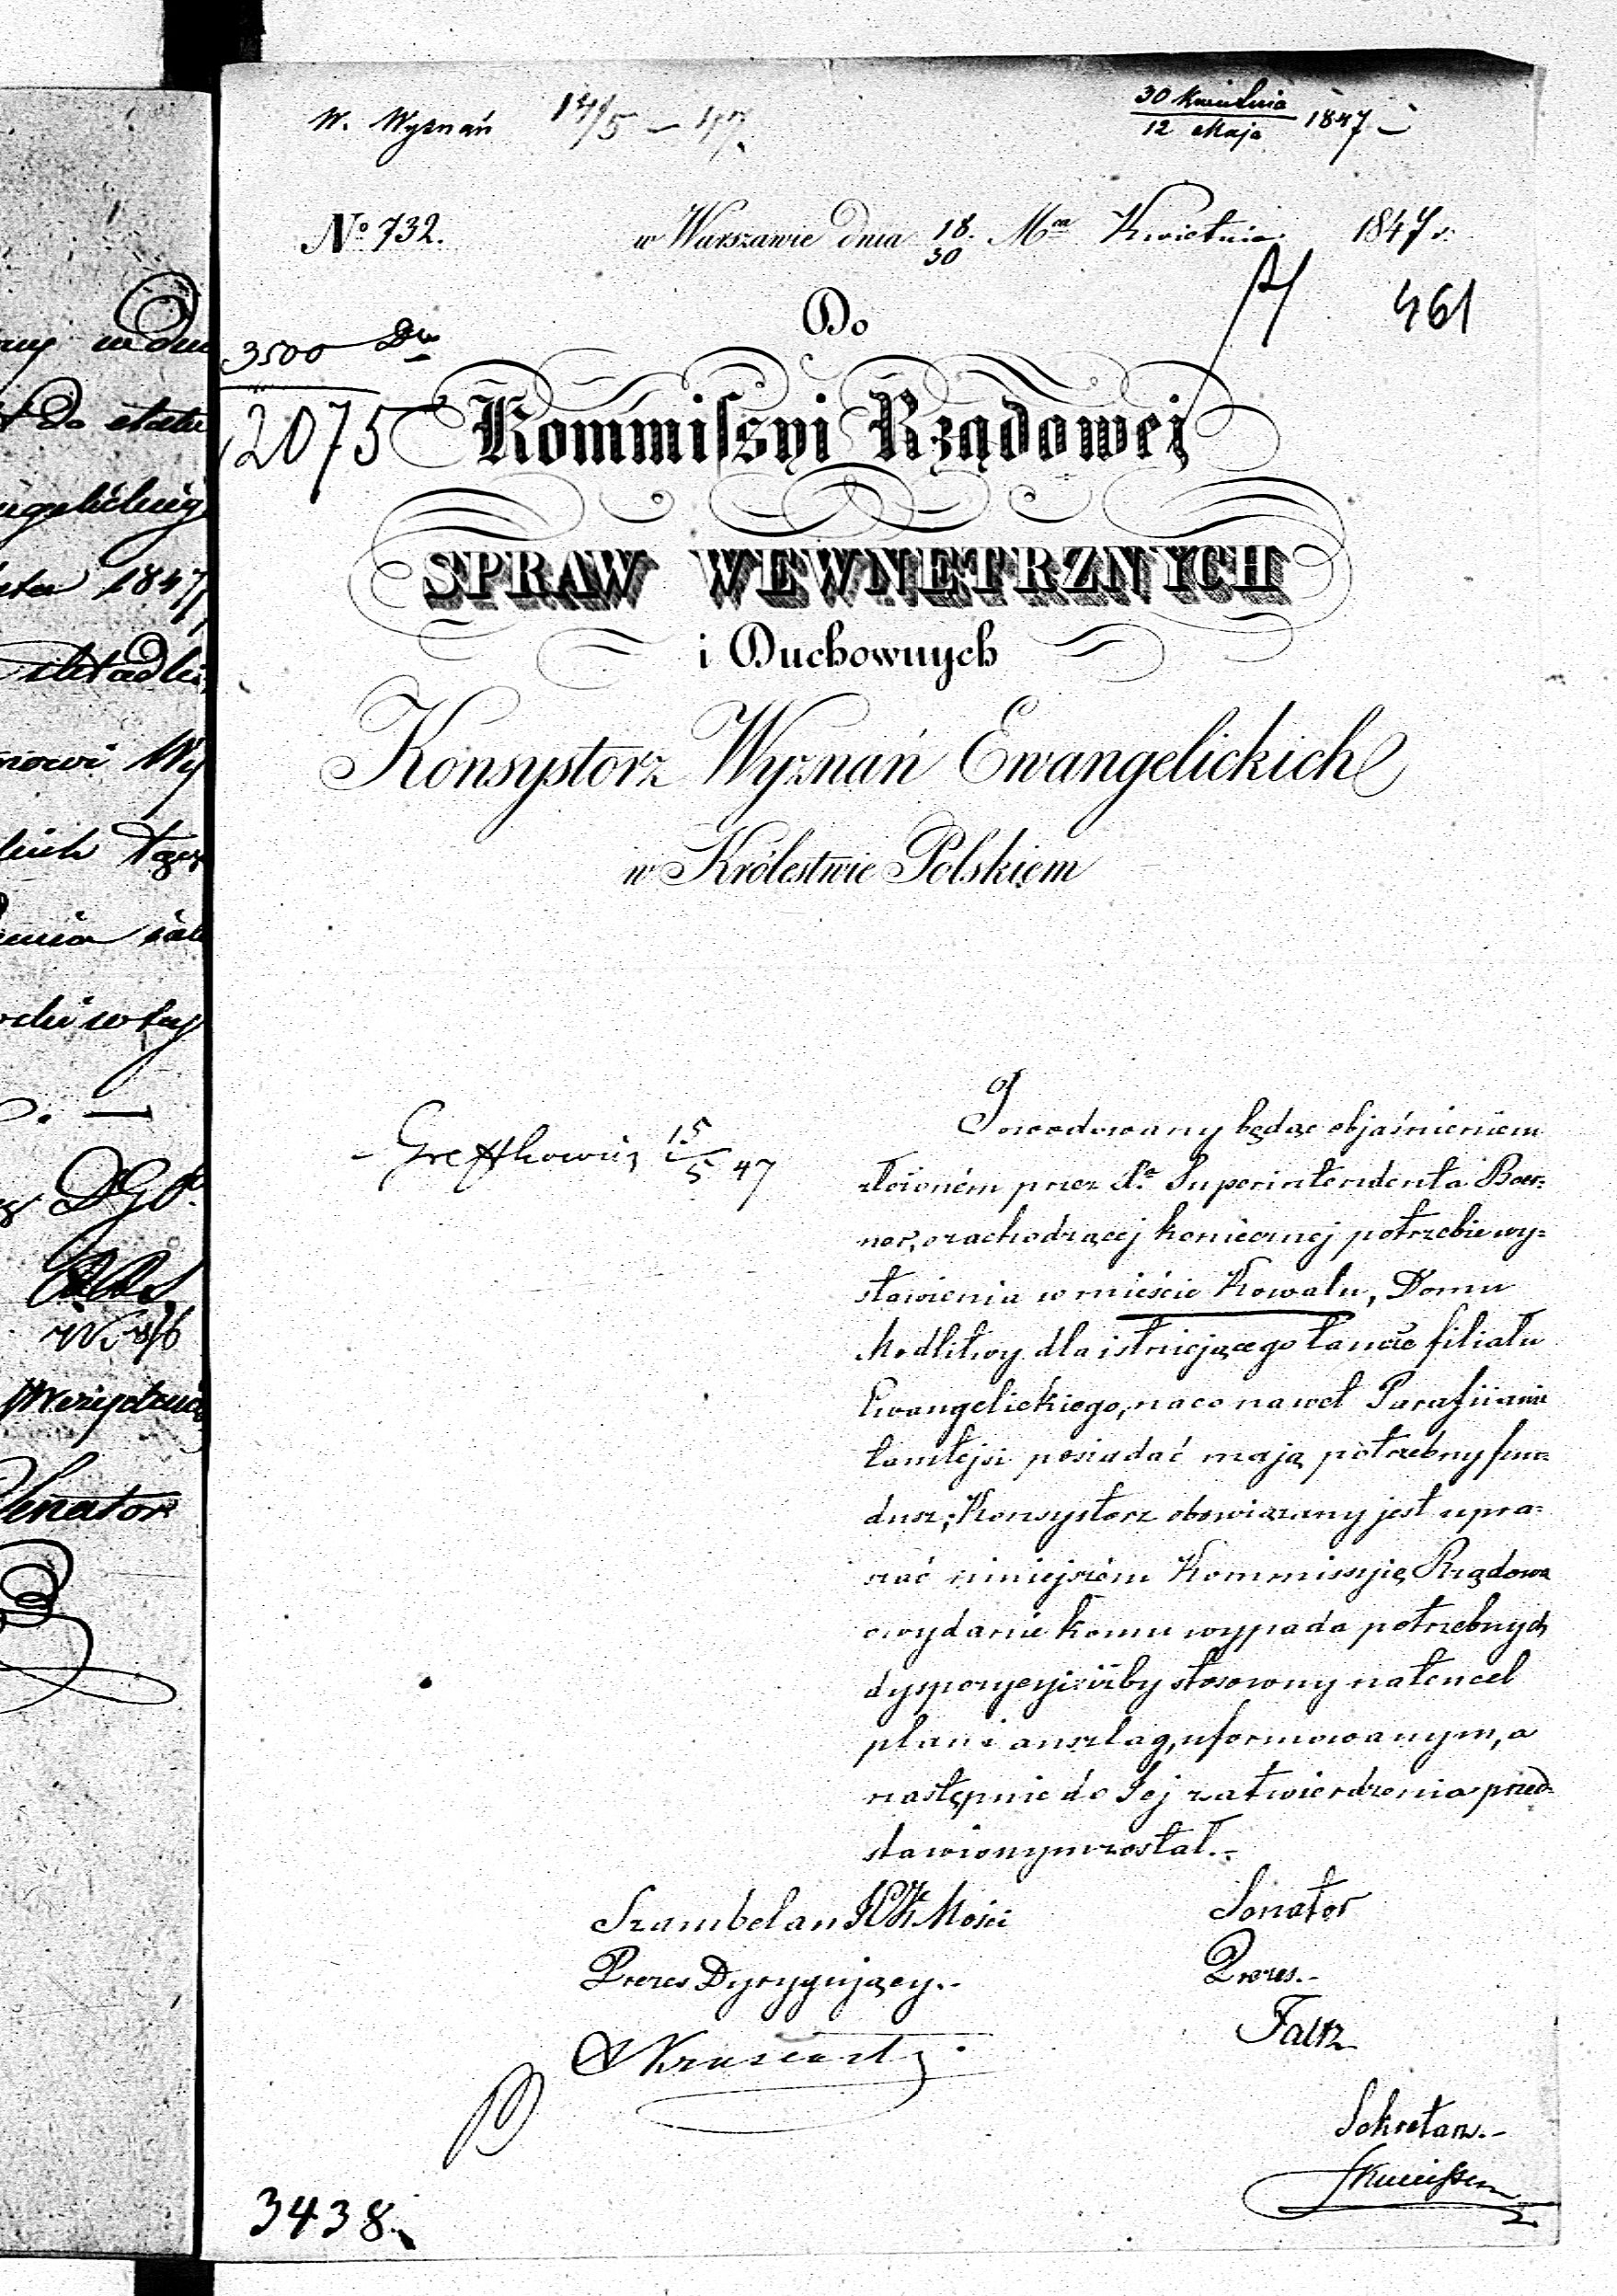 W. Wyznań 14/5 – 47.
30 Kwietnia
12 Maja 1847 –
No 732.
w Warszawie dnia 18. Mca Kwietnia 1847 r.
30
461
Do
3500 Dw
12075
Kommissyi Rządowej
SPRAW WEWNĘTRZNYCH
i Duchownych
Konsystorz Wyznań Ewangelickich
w Królestwie Polskiem
15
5 47
Powodowany będąc objaśnieniem
złożoném przez Xa Superintendenta Boer=
ner, o zachodzącej koniecznej potrzebie wy=
stawienia w mieście Kowalu, Domu
Modlitwy dla istniejącego tamże filiału
Ewangelickiego, na co nawet Parafijanie
tamtejsi posiadać mają potrzebny fun=
dusz; Konsystorz obowiązany jest upra=
szać niniejszém Kommissyię Rządową
o wydanie komu wypada potrzebnych
dyspozycyi iżby stosowny na ten cel
plan i anszlag, uformowanym, a
następnie do Jej zatwierdzenia przed=
stawionym został.–
Szambelan JCK Mości
Prezes Dyrygujący.–
Senator
Prezes.–
Sekretarz.–
3438.
ny wdn
do etatu
1847
nowi Wy
Senator